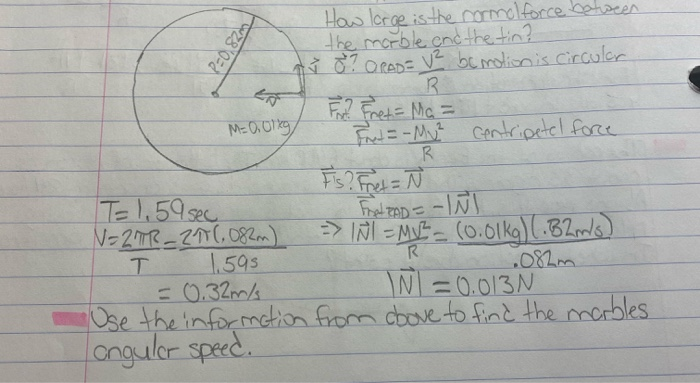 How large is the normal force between
the marble and the tin?
R=0.82m
V
a
M=0.01kg
a⃗? aRAD = V²/R bc motion is circular
F⃗net? F⃗net = Ma =
F⃗net = -Mv²/R centripetal force
F⃗'s? F⃗net = N⃗
F⃗net RAD = -|N⃗|
T=1.59sec
V=2πR/T = 2π(.082m)/1.59s
= 0.32m/s
=> |N⃗| = Mv²/R = (0.01kg)(.32m/s)/.082m
|N⃗| = 0.013N
Use the information from above to find the marbles
angular speed.